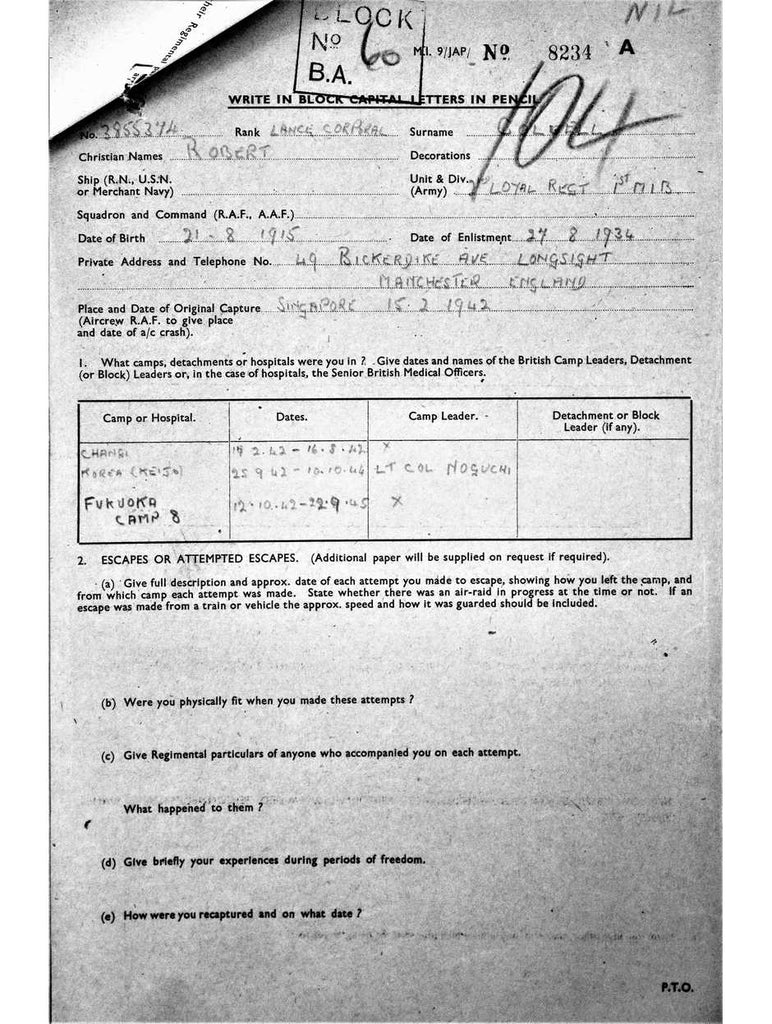 heir Regimental
BLOCK
No 60
B.A.
NIL
M.I. 9/JAP/ No 8234 A
WRITE IN BLOCK CAPITAL LETTERS IN PENCIL
104
No. 3855374 Rank LANCE CORPORAL Surname
Christian Names ROBERT Decorations
Ship (R.N., U.S.N. or Merchant Navy) Unit & Div. (Army) LOYAL REGT 1ST MIB
Squadron and Command (R.A.F., A.A.F.)
Date of Birth 21 - 8 1915 Date of Enlistment 27 8 1934
Private Address and Telephone No. 49 BICKERDIKE AVE LONGSIGHT
MANCHESTER ENGLAND
Place and Date of Original Capture SINGAPORE 15.2 1942
(Aircrew R.A.F. to give place
and date of a/c crash).
1. What camps, detachments or hospitals were you in ? Give dates and names of the British Camp Leaders, Detachment
(or Block) Leaders or, in the case of hospitals, the Senior British Medical Officers.
Camp or Hospital. Dates. Camp Leader. Detachment or Block Leader (if any).
CHANGI 2.42 - 16.8.42 X
KOREA (KEIJO) 25 9 42 - 10.10.44 LT COL NOGUCHI
FUKUOKA CAMP 8 12.10.42-22.9.45 X
2. ESCAPES OR ATTEMPTED ESCAPES. (Additional paper will be supplied on request if required).
(a) Give full description and approx. date of each attempt you made to escape, showing how you left the camp, and
from which camp each attempt was made. State whether there was an air-raid in progress at the time or not. If an
escape was made from a train or vehicle the approx. speed and how it was guarded should be included.
(b) Were you physically fit when you made these attempts ?
(c) Give Regimental particulars of anyone who accompanied you on each attempt.
What happened to them ?
(d) Give briefly your experiences during periods of freedom.
(e) How were you recaptured and on what date ?
P.T.O.